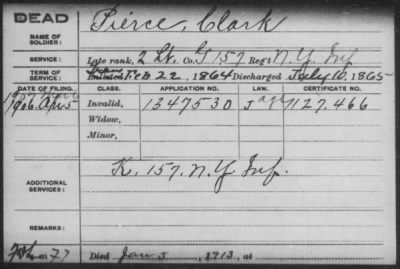 DEAD
Pierce, Clark
NAME OF SOLDIER:
SERVICE: Late rank, 2 Lt. Co. G 157 Reg't N.Y. Inf
TERM OF SERVICE: Enlisted Feb 22, 1864 Discharged July 10, 1865
DATE OF FILING. CLASS. APPLICATION NO. LAW. CERTIFICATE NO.
1906. Apr 5 Invalid, 1347530 1127.466
Widow,
Minor,
ADDITIONAL SERVICES: K. 157. N.Y. Inf.
REMARKS:
Died Jan 5, 1913, at